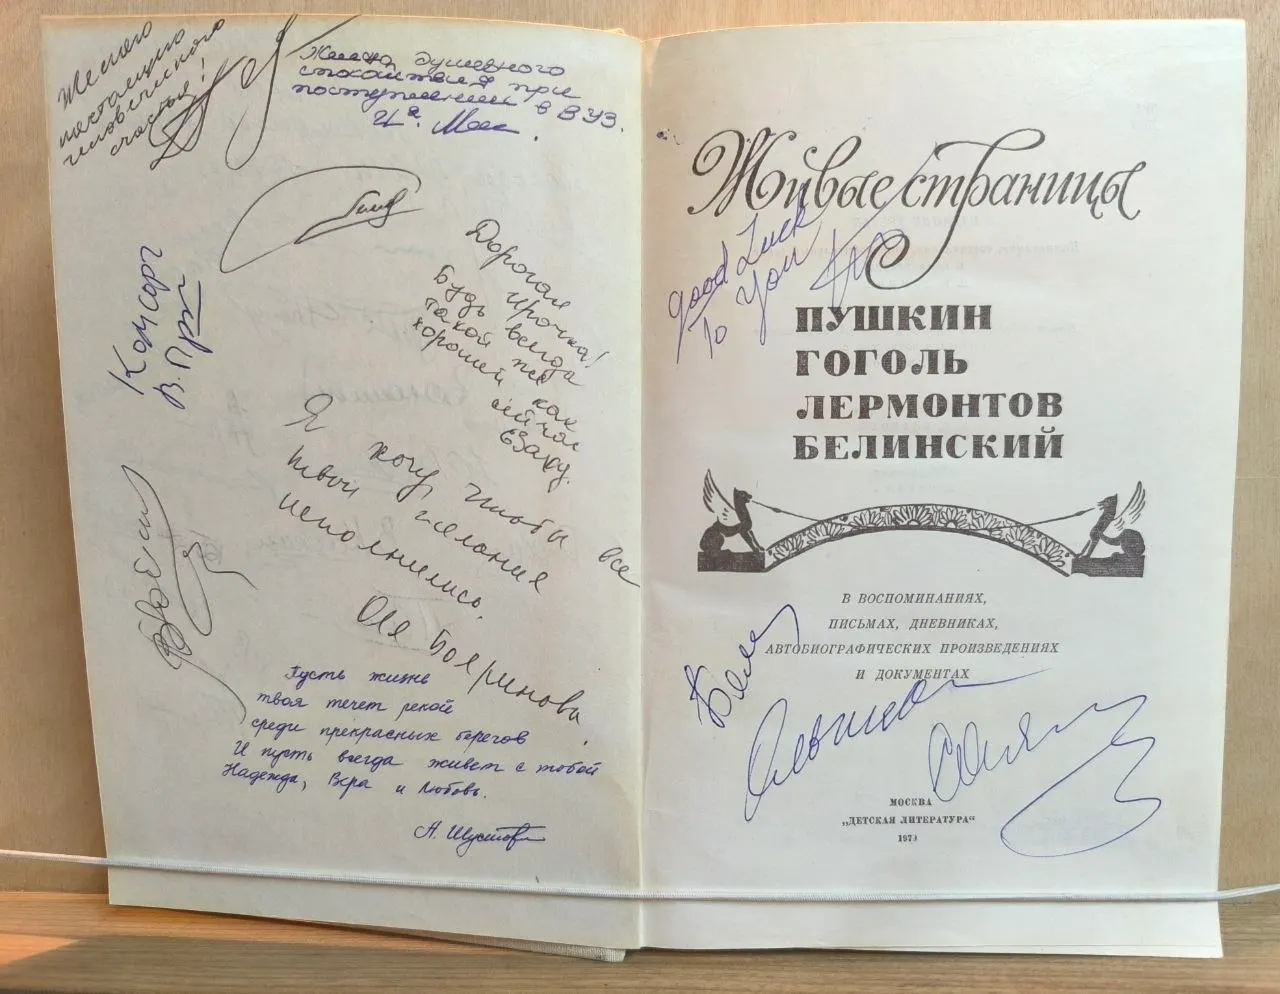 Желаю
настоящего
человеческого
счастья!
Желаю душевного
спокойствия при
поступлении в ВУЗ.
Дорогая
Ирочка!
Будь всегда
такой же
хорошей как
сейчас
Комсорг
Я хочу чтобы все
твои желания
исполнились.
Оля Бояринова
Пусть жизнь
твоя течет рекой
среди прекрасных берегов
И пусть всегда живет с тобой
Надежда, Вера и Любовь.
А. Шустова
Живые страницы
Good Luck
To You
ПУШКИН
ГОГОЛЬ
ЛЕРМОНТОВ
БЕЛИНСКИЙ
В ВОСПОМИНАНИЯХ,
ПИСЬМАХ, ДНЕВНИКАХ,
АВТОБИОГРАФИЧЕСКИХ ПРОИЗВЕДЕНИЯХ
И ДОКУМЕНТАХ
МОСКВА
„ДЕТСКАЯ ЛИТЕРАТУРА"